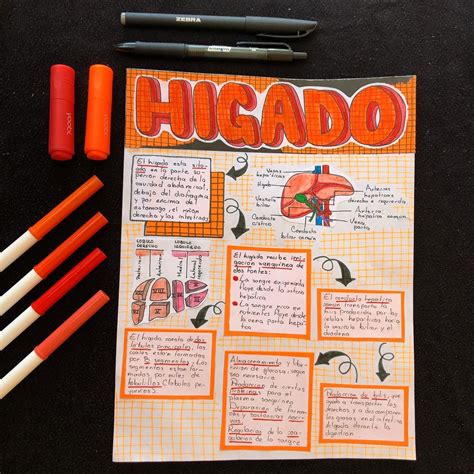 ZEBRA
HIGADO
El higado esta situ-
ado en la parte su-
perior derecha de la
cavidad abdominal,
debajo del diafragma
y por encima del
estomago, el riñon
derecho y los intestinos
Venas
hepáticas
Higado
Vesicula
biliar
Conducto
cistico
Conducto
biliar común
Arterias
hepáticas
derecha e izquierda
Arteria
hepática común
Vena
porta
LOBULO
DERECHO
LOBULO
IZQUIERDO
El higado recibe
sanguinea de
dos fuentes:
La sangre oxigenada
fluye desde la arteria
hepatica
La sangre rica en
nutrientes fluye desde
la vena porta hepa-
tica
El conducto hepatico
común transporta la
bilis producida por las
celulas hepaticas hacia
la vesicula biliar y el
duodeno
El higado consta de dos
lobulos principales, los
cuales estan formados
por 8 segmentos, los
segmentos estan for-
mados por miles de
lobulillos (lobulos pe-
queños).
Almacenamiento y libe-
ración de glucosa, segun
sea necesario
Produccion de ciertas
proteinas para el
plasma sanguineo
Depuracion de farma-
cos y sustancias nocivas
Regulacion de la coa-
gulacion de la sangre
Produccion de bilis, que
ayuda a transportar los
desechos y a descomponer
las grasas en el intestino
delgado durante la
digestion